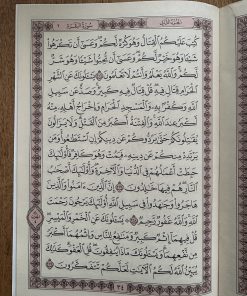 الجزء الثاني سورة البقرة
كُتِبَ عَلَيْكُمُ ٱلْقِتَالُ وَهُوَ كُرْهٌ لَّكُمْ وَعَسَىٰٓ أَن تَكْرَهُوا۟
شَيْـًٔا وَهُوَ خَيْرٌ لَّكُمْ وَعَسَىٰٓ أَن تُحِبُّوا۟ شَيْـًٔا وَهُوَ شَرٌّ
لَّكُمْ وَٱللَّهُ يَعْلَمُ وَأَنتُمْ لَا تَعْلَمُونَ ٢١٦ يَسْـَٔلُونَكَ عَنِ ٱلشَّهْرِ
ٱلْحَرَامِ قِتَالٍ فِيهِ قُلْ قِتَالٌ فِيهِ كَبِيرٌ وَصَدٌّ عَن سَبِيلِ
ٱللَّهِ وَكُفْرٌۢ بِهِۦ وَٱلْمَسْجِدِ ٱلْحَرَامِ وَإِخْرَاجُ أَهْلِهِۦ مِنْهُ
أَكْبَرُ عِندَ ٱللَّهِ وَٱلْفِتْنَةُ أَكْبَرُ مِنَ ٱلْقَتْلِ وَلَا يَزَالُونَ
يُقَٰتِلُونَكُمْ حَتَّىٰ يَرُدُّوكُمْ عَن دِينِكُمْ إِنِ ٱسْتَطَٰعُوا۟ وَمَن
يَرْتَدِدْ مِنكُمْ عَن دِينِهِۦ فَيَمُتْ وَهُوَ كَافِرٌ فَأُو۟لَٰٓئِكَ
حَبِطَتْ أَعْمَٰلُهُمْ فِى ٱلدُّنْيَا وَٱلْـَٔاخِرَةِ وَأُو۟لَٰٓئِكَ أَصْحَٰبُ
ٱلنَّارِ هُمْ فِيهَا خَٰلِدُونَ ٢١٧ إِنَّ ٱلَّذِينَ ءَامَنُوا۟ وَٱلَّذِينَ
هَاجَرُوا۟ وَجَٰهَدُوا۟ فِى سَبِيلِ ٱللَّهِ أُو۟لَٰٓئِكَ يَرْجُونَ رَحْمَتَ
ٱللَّهِ وَٱللَّهُ غَفُورٌ رَّحِيمٌ ٢١٨ ۞ يَسْـَٔلُونَكَ عَنِ ٱلْخَمْرِ وَٱلْمَيْسِرِ
قُلْ فِيهِمَآ إِثْمٌ كَبِيرٌ وَمَنَٰفِعُ لِلنَّاسِ وَإِثْمُهُمَآ أَكْبَرُ
مِن نَّفْعِهِمَا وَيَسْـَٔلُونَكَ مَاذَا يُنفِقُونَ قُلِ ٱلْعَفْوَ كَذَٰلِكَ
يُبَيِّنُ ٱللَّهُ لَكُمُ ٱلْـَٔايَٰتِ لَعَلَّكُمْ تَتَفَكَّرُونَ ٢١٩
٣٤